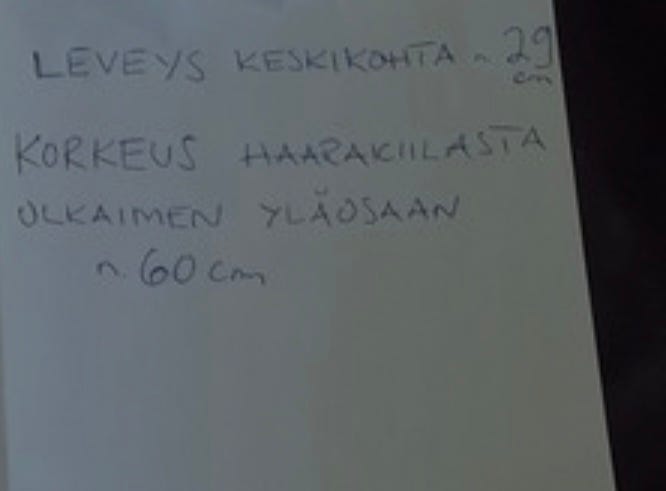 LEVEYS KESKIKOHTA n. 29 cm
KORKEUS HAARAKIILASTA
OLKAIMEN YLÄOSAAN
n. 60 cm